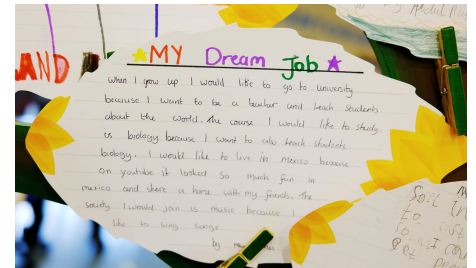 AND
MY Dream Job
When I grow up I would like to go to university
because I want to be a teacher and teach students
about the world. The course I would like to study
is biology because I want to also teach students
biology. I would like to live in mexico because
on youtube it looked so much fun in
mexico and share a home with my friends. The
society I would join is music because I
like to sing songs
by